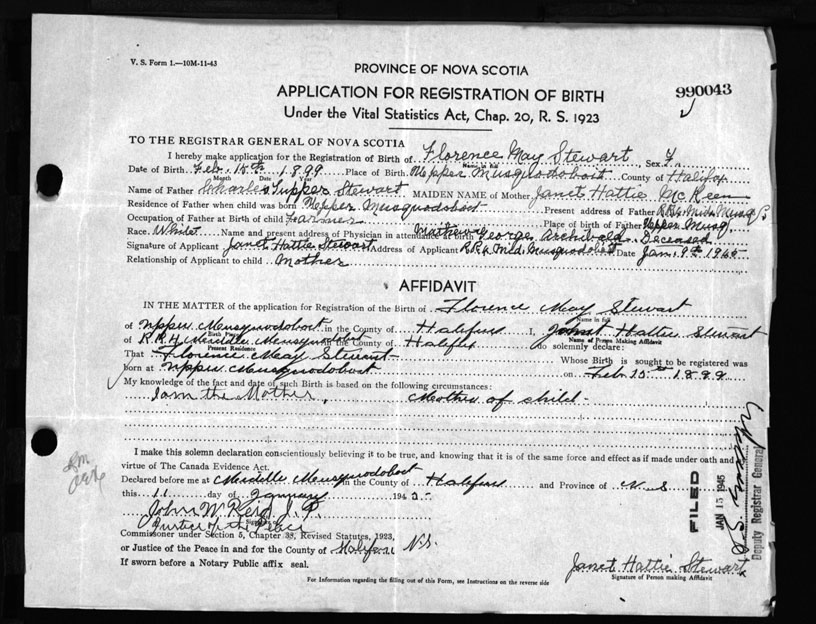 V. S. Form 1.—10M-11-43
PROVINCE OF NOVA SCOTIA
APPLICATION FOR REGISTRATION OF BIRTH
990043
Under the Vital Statistics Act, Chap. 20, R. S. 1923
TO THE REGISTRAR GENERAL OF NOVA SCOTIA
I hereby make application for the Registration of Birth of Florence May Stewart, Sex F
Name in full
Date of Birth Feb. 15th 1899 Place of Birth Upper Musquodoboit County of Halifax
Month Date Year
Name of Father Charles Tupper Stewart MAIDEN NAME of Mother Janet Hattie McKeen
Residence of Father when child was born Upper Musquodoboit Present address of Father R.R.4 Midd. Musq.
Occupation of Father at Birth of child Farmer Place of birth of Father Upper Musq.
Race White Name and present address of Physician in attendance at birth Mathew George Archibald. Deceased
Signature of Applicant Janet Hattie Stewart Address of Applicant R.R.4 Mid. Musquodoboit Date Jan. 9th 1945
Relationship of Applicant to child Mother
AFFIDAVIT
IN THE MATTER of the application for Registration of the Birth of Florence May Stewart
Name in full
of Upper Musquodoboit in the County of Halifax I, Janet Hattie Stewart
Birth Place Name of Person Making Affidavit
of R.R.4 Middle Musquodoboit in the County of Halifax do solemnly declare:
Present Residence
That Florence May Stewart Whose Birth is sought to be registered was
born at Upper Musquodoboit on Feb 15th 1899
My knowledge of the fact and date of such Birth is based on the following circumstances:
I am the Mother, Mother of child -
I make this solemn declaration conscientiously believing it to be true, and knowing that it is of the same force and effect as if made under oath and
virtue of The Canada Evidence Act.
Declared before me at Middle Musquodoboit in the County of Halifax and Province of N. S
this 11 day of January 1945
John W Reid J. P.
Justice of the Peace
Commissioner under Section 5, Chapter 38, Revised Statutes, 1923,
or Justice of the Peace in and for the County of Halifax N.S.
If sworn before a Notary Public affix seal.
Janet Hattie Stewart
Signature of Person making Affidavit
For Information regarding the filling out of this Form, see Instructions on the reverse side
FILED
JAN 15 1945
Deputy Registrar General